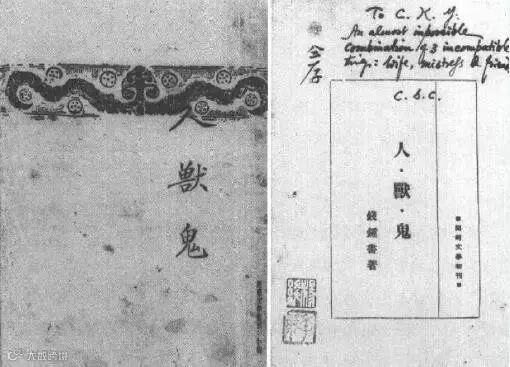 人獸鬼
To C. K. Y.
An almost impossible
combination of 3 incompatible
things: wife, mistress & frien
C. S. C.
人·獸·鬼
錢鍾書著
開明文學新刊
大数跨境